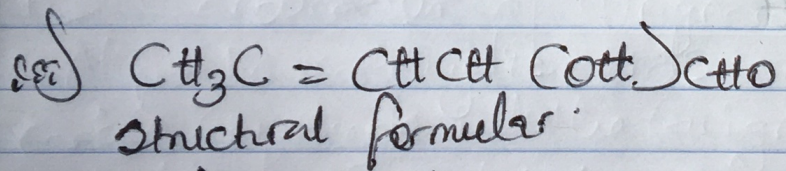 CH₃C = CHCH (OH)CHO
structural formular.